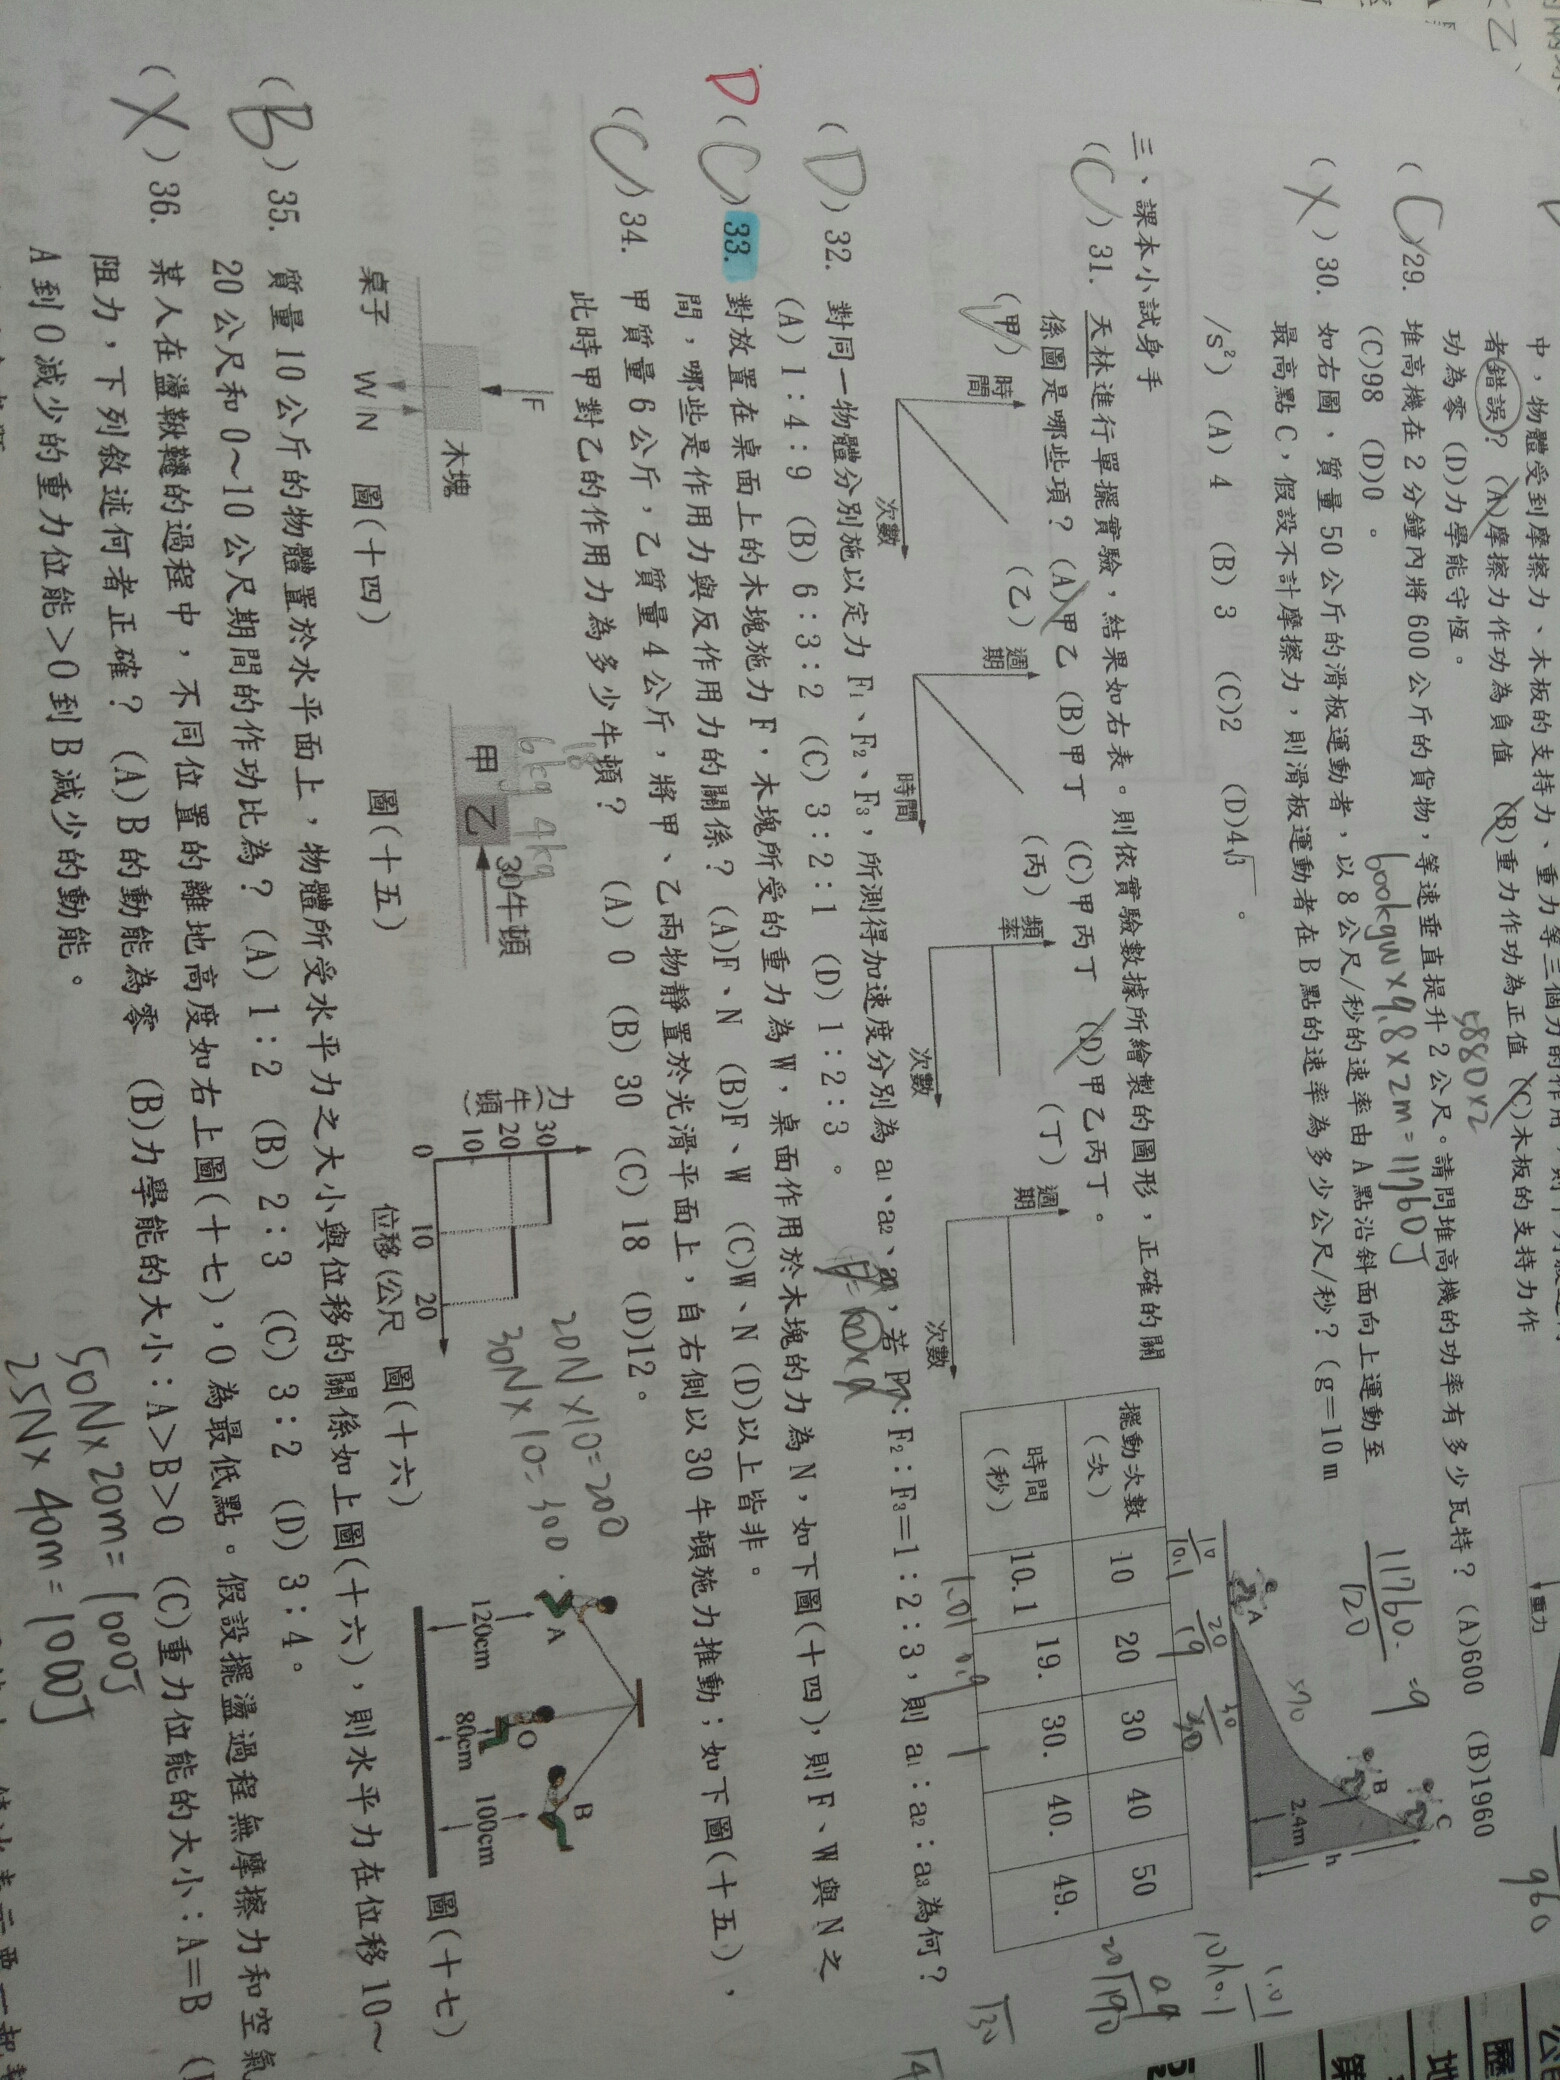 中，物體受到摩擦力、木板的支持力、重力等三個力的作用，則
者錯誤？ (A)摩擦力作功為負值 (B)重力作功為正值 (C)木板的支持力作
功為零 (D)力學能守恆。
5880×2
(C)29. 堆高機在2分鐘內將600公斤的貨物，等速垂直提升2公尺。請問堆高機的功率有多少瓦特？ (A)600 (B)1960
(C)98 (D)0 。
600kgw×9.8×2m=11760J
11760
120
(X)30. 如右圖，質量50公斤的滑板運動者，以8公尺/秒的速率由A點沿斜面向上運動至
最高點C，假設不計摩擦力，則滑板運動者在B點的速率為多少公尺/秒？(g=10m
/s²) (A)4 (B)3 (C)2 (D)4√3 。
A
B
C
2.4m
h
三、課本小試身手
(C)31. 天林進行單擺實驗，結果如右表。則依實驗數據所繪製的圖形，正確的關
係圖是哪些項？ (A)甲乙 (B)甲丁 (C)甲丙丁 (D)甲乙丙丁。
(甲) 時間 次數
(乙) 週期 時間
(丙) 頻率 次數
(丁) 週期 次數
擺動次數(次) 10 20 30 40 50
時間(秒) 10.1 19. 30. 40. 49.
(D)32. 對同一物體分別施以定力F₁、F₂、F₃，所測得加速度分別為a₁、a₂、a₃，若F₁：F₂：F₃=1：2：3，則a₁：a₂：a₃為何？
(A) 1：4：9 (B) 6：3：2 (C) 3：2：1 (D) 1：2：3 。
D(C)33. 對放置在桌面上的木塊施力F，木塊所受的重力為W，桌面作用於木塊的力為N，如下圖(十四)，則F、W與N之
間，哪些是作用力與反作用力的關係？(A)F、N (B)F、W (C)W、N (D)以上皆非。
(C)34. 甲質量6公斤，乙質量4公斤，將甲、乙兩物靜置於光滑平面上，自右側以30牛頓施力推動；如下圖(十五)，
此時甲對乙的作用力為多少牛頓？ (A) 0 (B) 30 (C) 18 (D)12。
F
木塊
桌子 W N 圖(十四)
18
6kg 4kg
甲 乙 30牛頓
圖(十五)
力(牛頓)
30
20
10
0 10 20
位移(公尺 圖(十六)
20N×10=200
30N×10=300
A
O
B
120cm 80cm 100cm
圖(十七)
(B)35. 質量10公斤的物體置於水平面上，物體所受水平力之大小與位移的關係如上圖(十六)，則水平力在位移10～
20公尺和0～10公尺期間的作功比為？ (A) 1：2 (B) 2：3 (C) 3：2 (D) 3：4。
(X)36. 某人在盪鞦韆的過程中，不同位置的離地高度如右上圖(十七)，O為最低點。假設擺盪過程無摩擦力和空氣
阻力，下列敘述何者正確？ (A) B的動能為零 (B)力學能的大小：A>B>O (C)重力位能的大小：A=B
A到O減少的重力位能>O到B減少的動能。
50N×20m=1000J
25N×40m=1000J